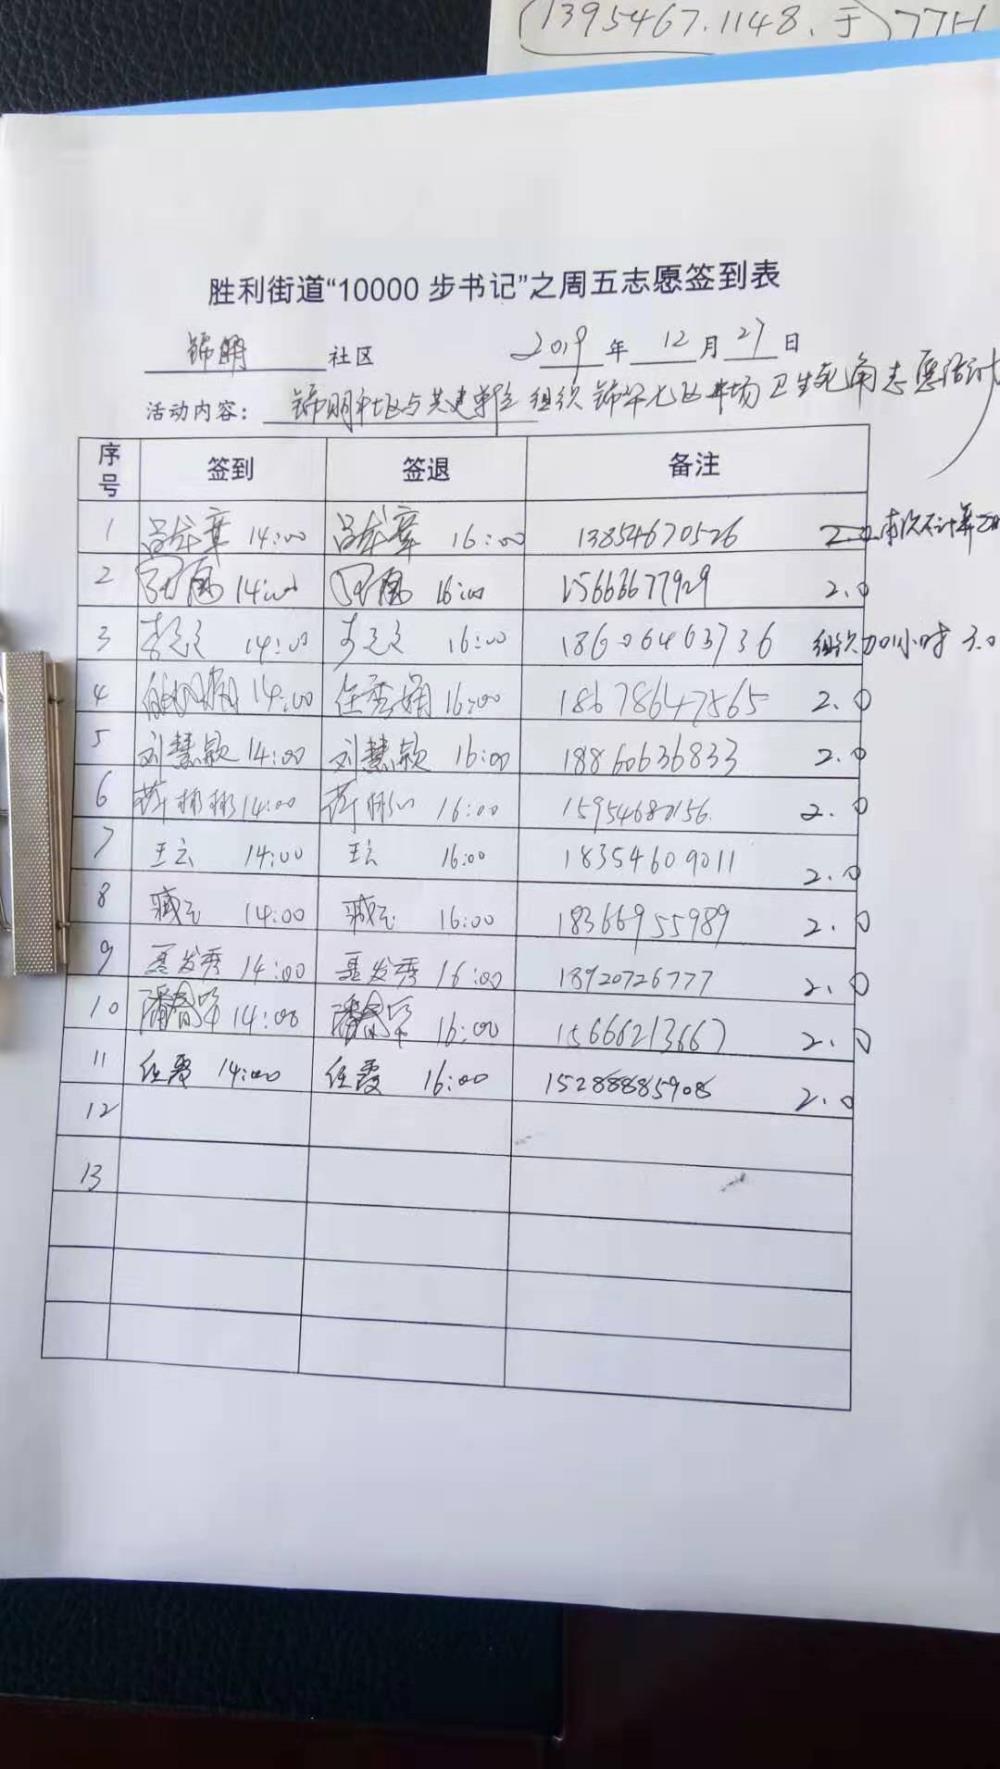 (1395467.1148.于)
胜利街道“10000 步书记”之周五志愿签到表
锦明 社区 2019 年 12 月 27 日
活动内容： 锦明社区与共建单位组织锦华七区广场卫生死角志愿活动
序号 签到 签退 备注
1 14:00 16:00 13854670526 2.0
2 14:00 16:00 15666677929 2.0
3 14:00 16:00 18606463736 组织加1小时 3.0
4 14:00 任秀娟 16:00 18678647565 2.0
5 刘慧颖 14:00 刘慧颖 16:00 18860636833 2.0
6 14:00 16:00 2.0
7 王云 14:00 王云 16:00 18354609011 2.0
8 臧云 14:00 臧云 16:00 18366955989 2.0
9 聂发秀 14:00 聂发秀 16:00 18920726777 2.0
10 14:00 16:00 15666213667 2.0
11 任霞 14:00 任霞 16:00 15288885908 2.0
12
13